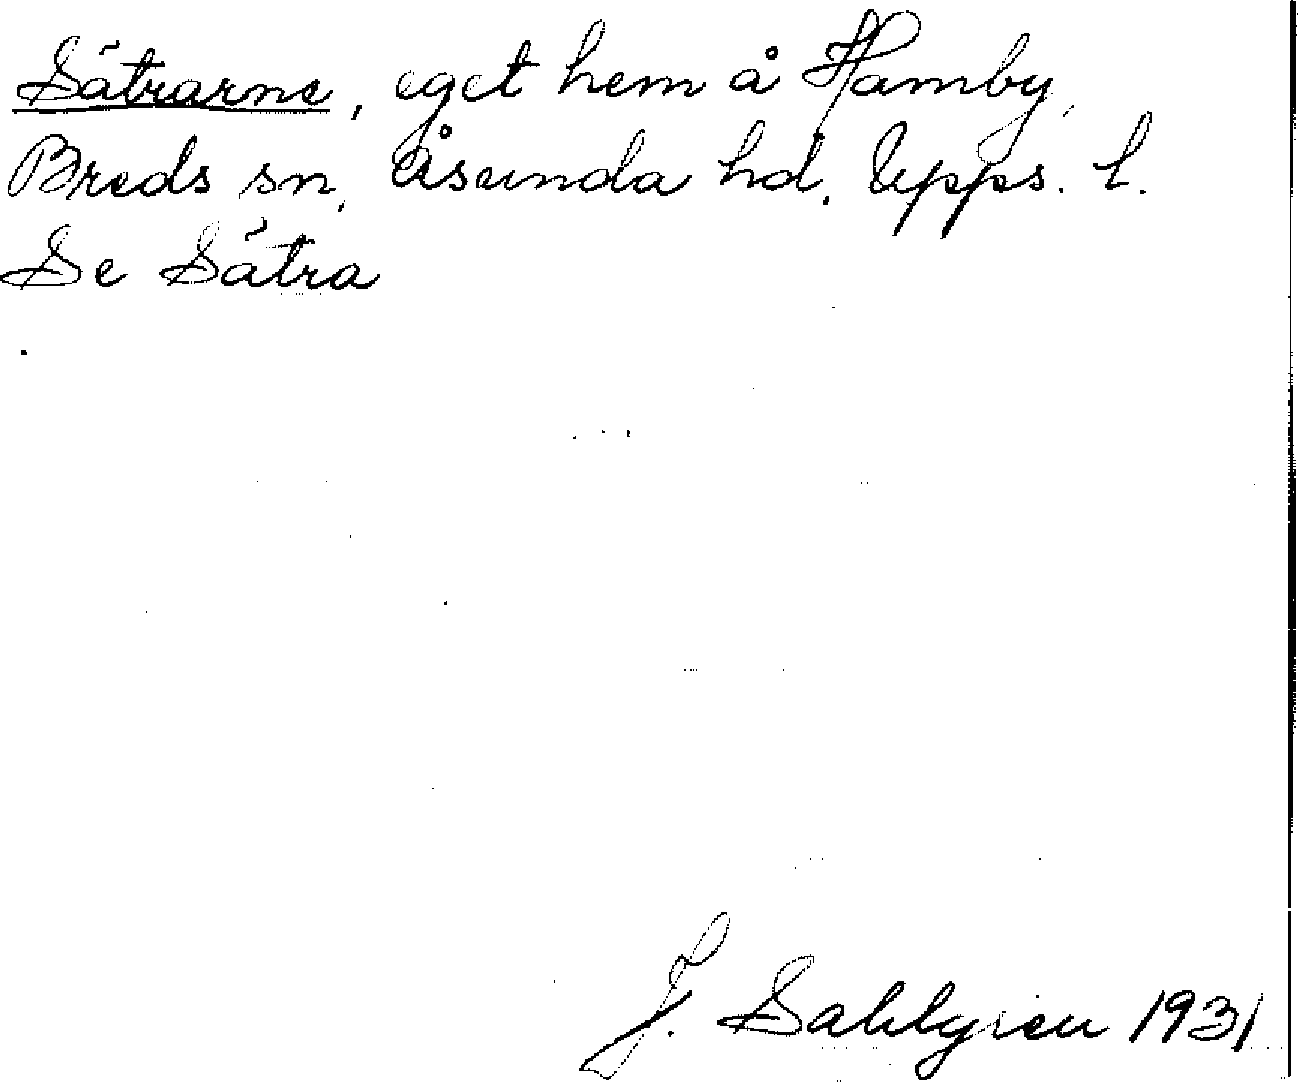 Sätrarne, eget hem å Hamby,
Breds sn, Åsunda hd, Upps. l.
Se Sätra
J. Sahlgren 1931